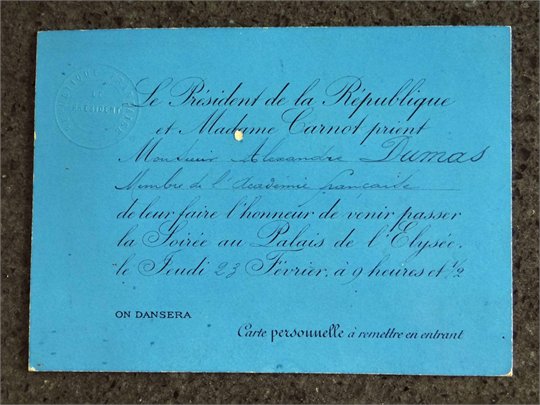 Le Président de la République
et Madame Carnot prient
Monsieur Alexandre Dumas
Membre de l'Academie française
de leur faire l'honneur de venir passer
la Soirée au Palais de l'Elysée,
le Jeudi 23 Février, à 9 heures et 1/2
ON DANSERA
Carte personnelle à remettre en entrant